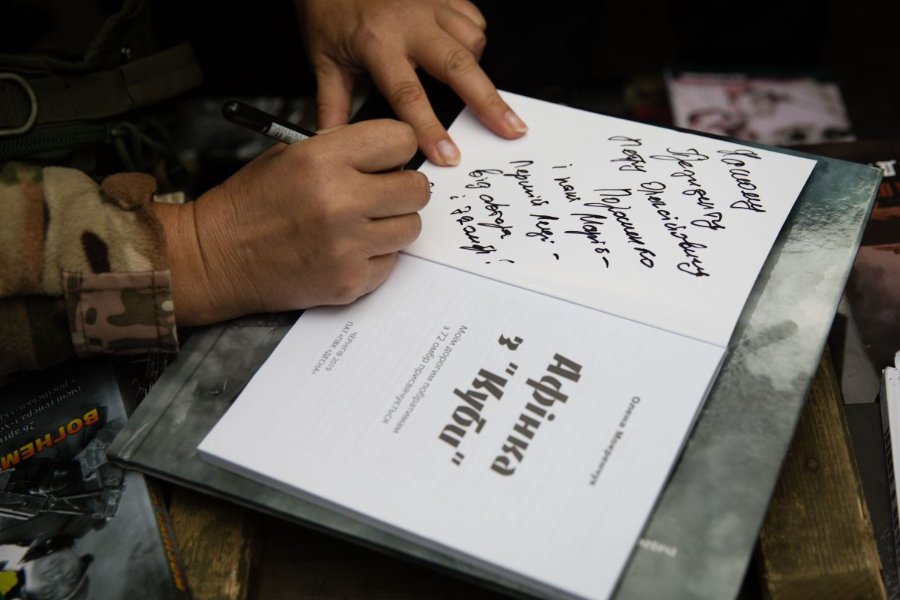 Нашому
Президенту
Петру Олексійовичу
Порошенко
і пані Марії -
першій леді -
від автора
і
Олена Мокренчук
Афінка
з "Куби"
Моїм дорогим побратимам
з 72 омбр присвячується
ЧЕРНІГІВ 2019
ПАТ «ПВК «ДЕСНА»
ВОГНЕМ